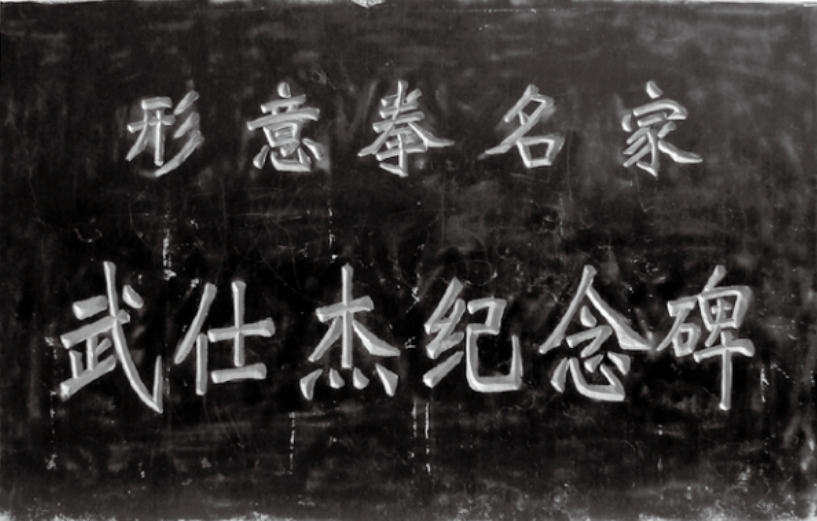 形意拳名家
武仕杰纪念碑